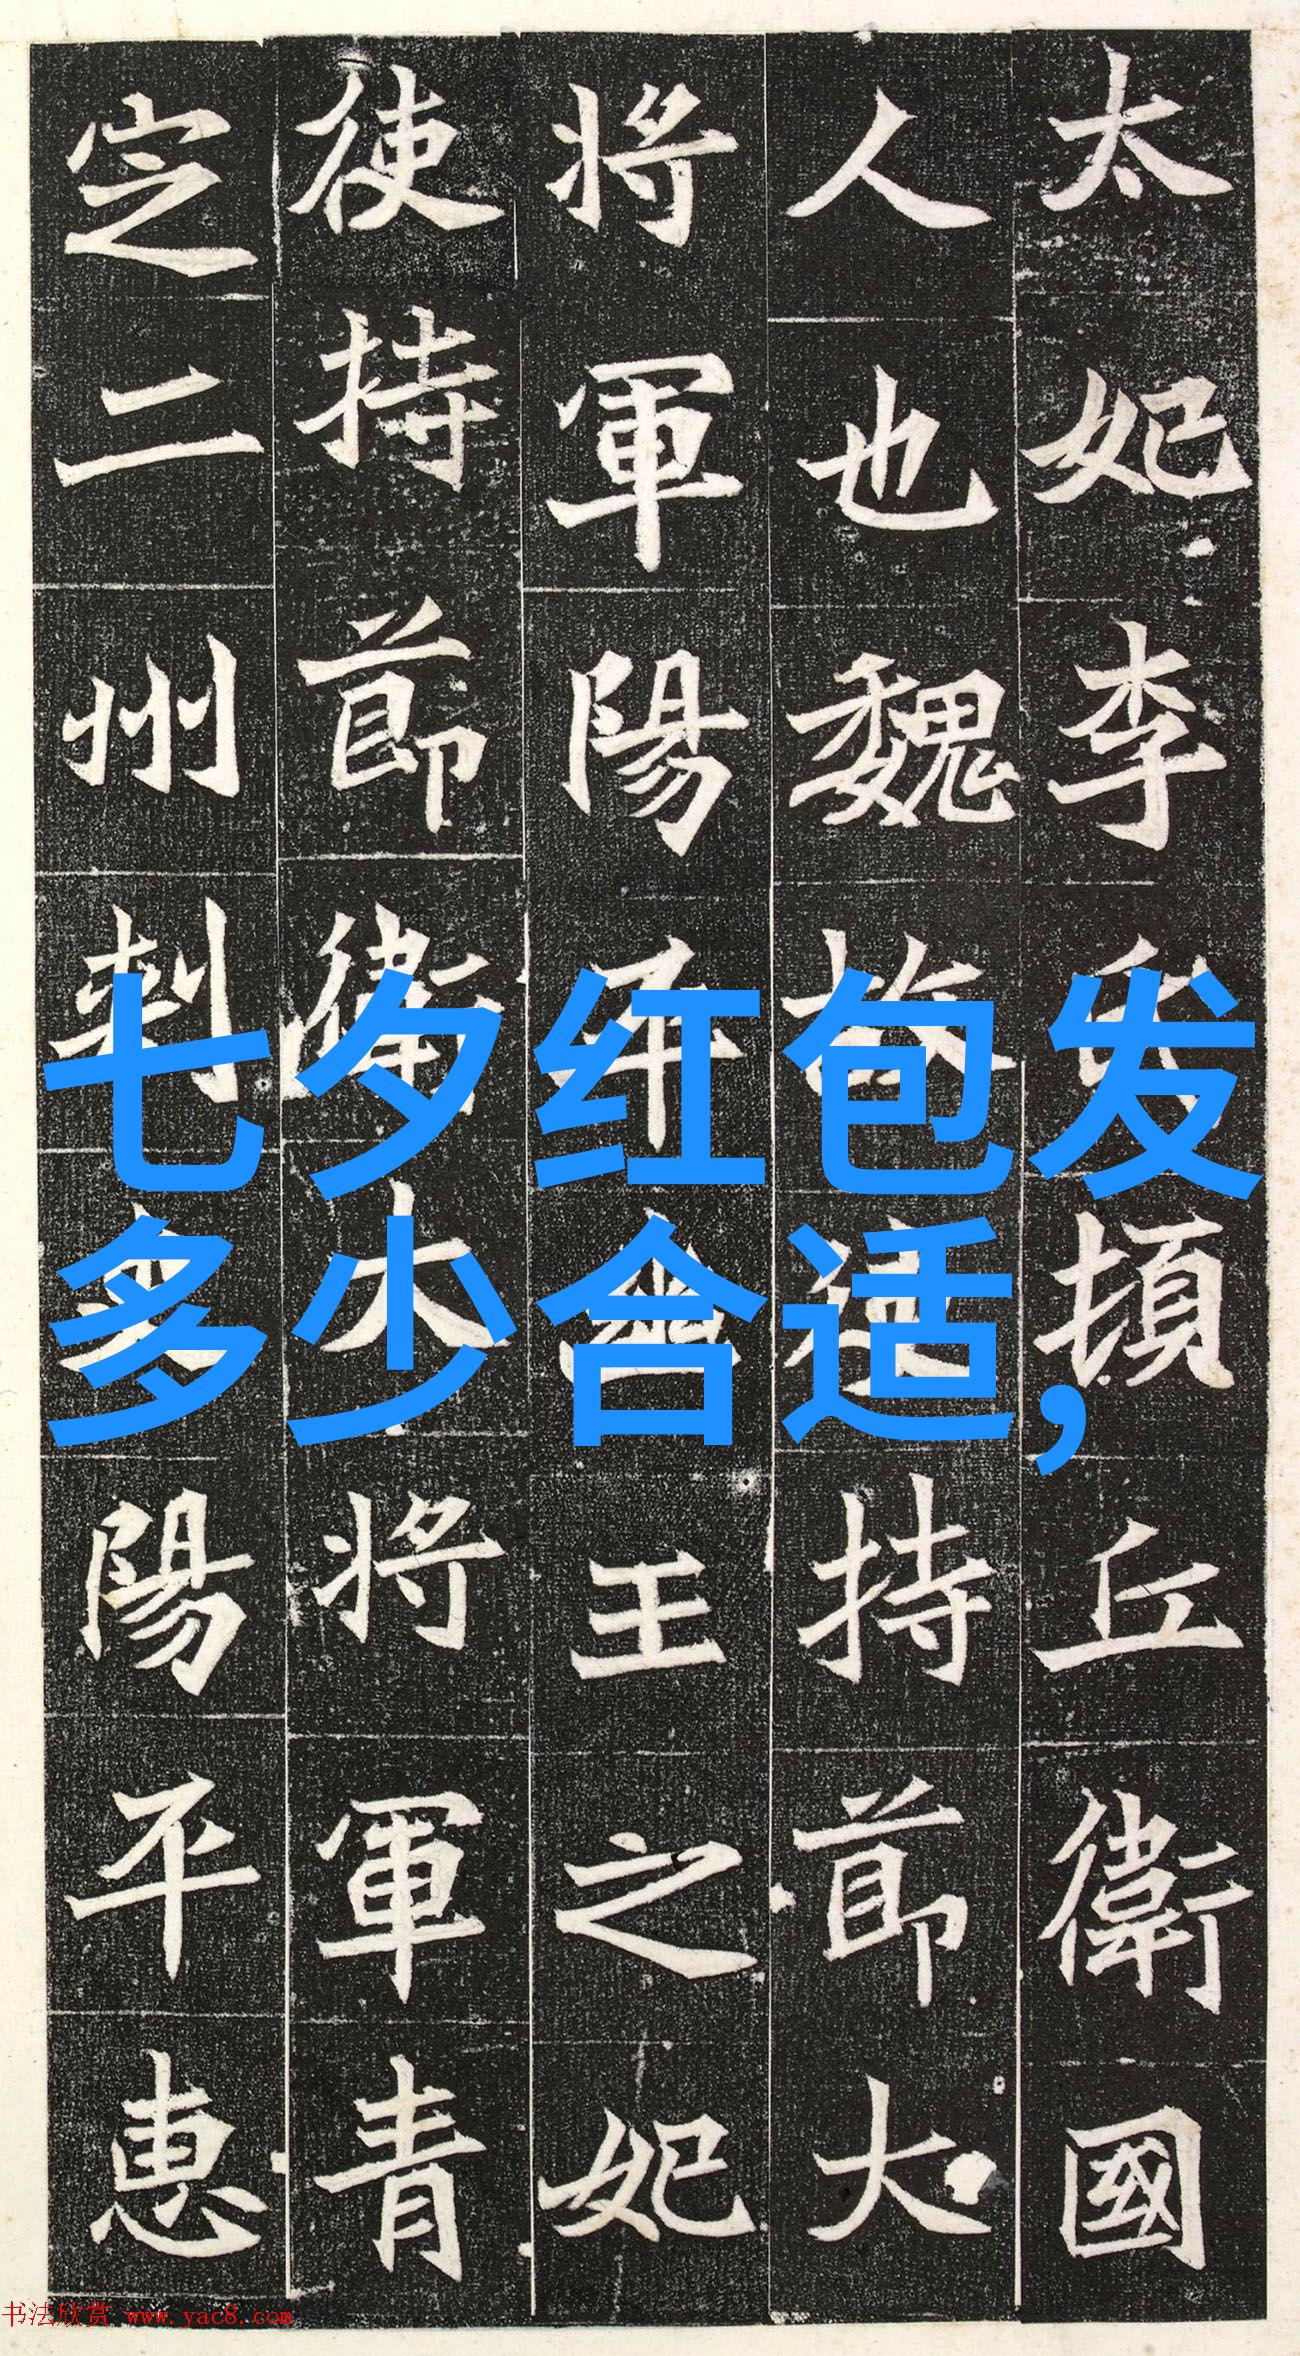 太妃李氏頓丘衛國
人也魏故使持節大
將軍陽平幽王之妃
使持節衛大將軍青
定二州刺史陽平惠
七夕红包发
多少合适,
书法欣赏 www.yac8.com